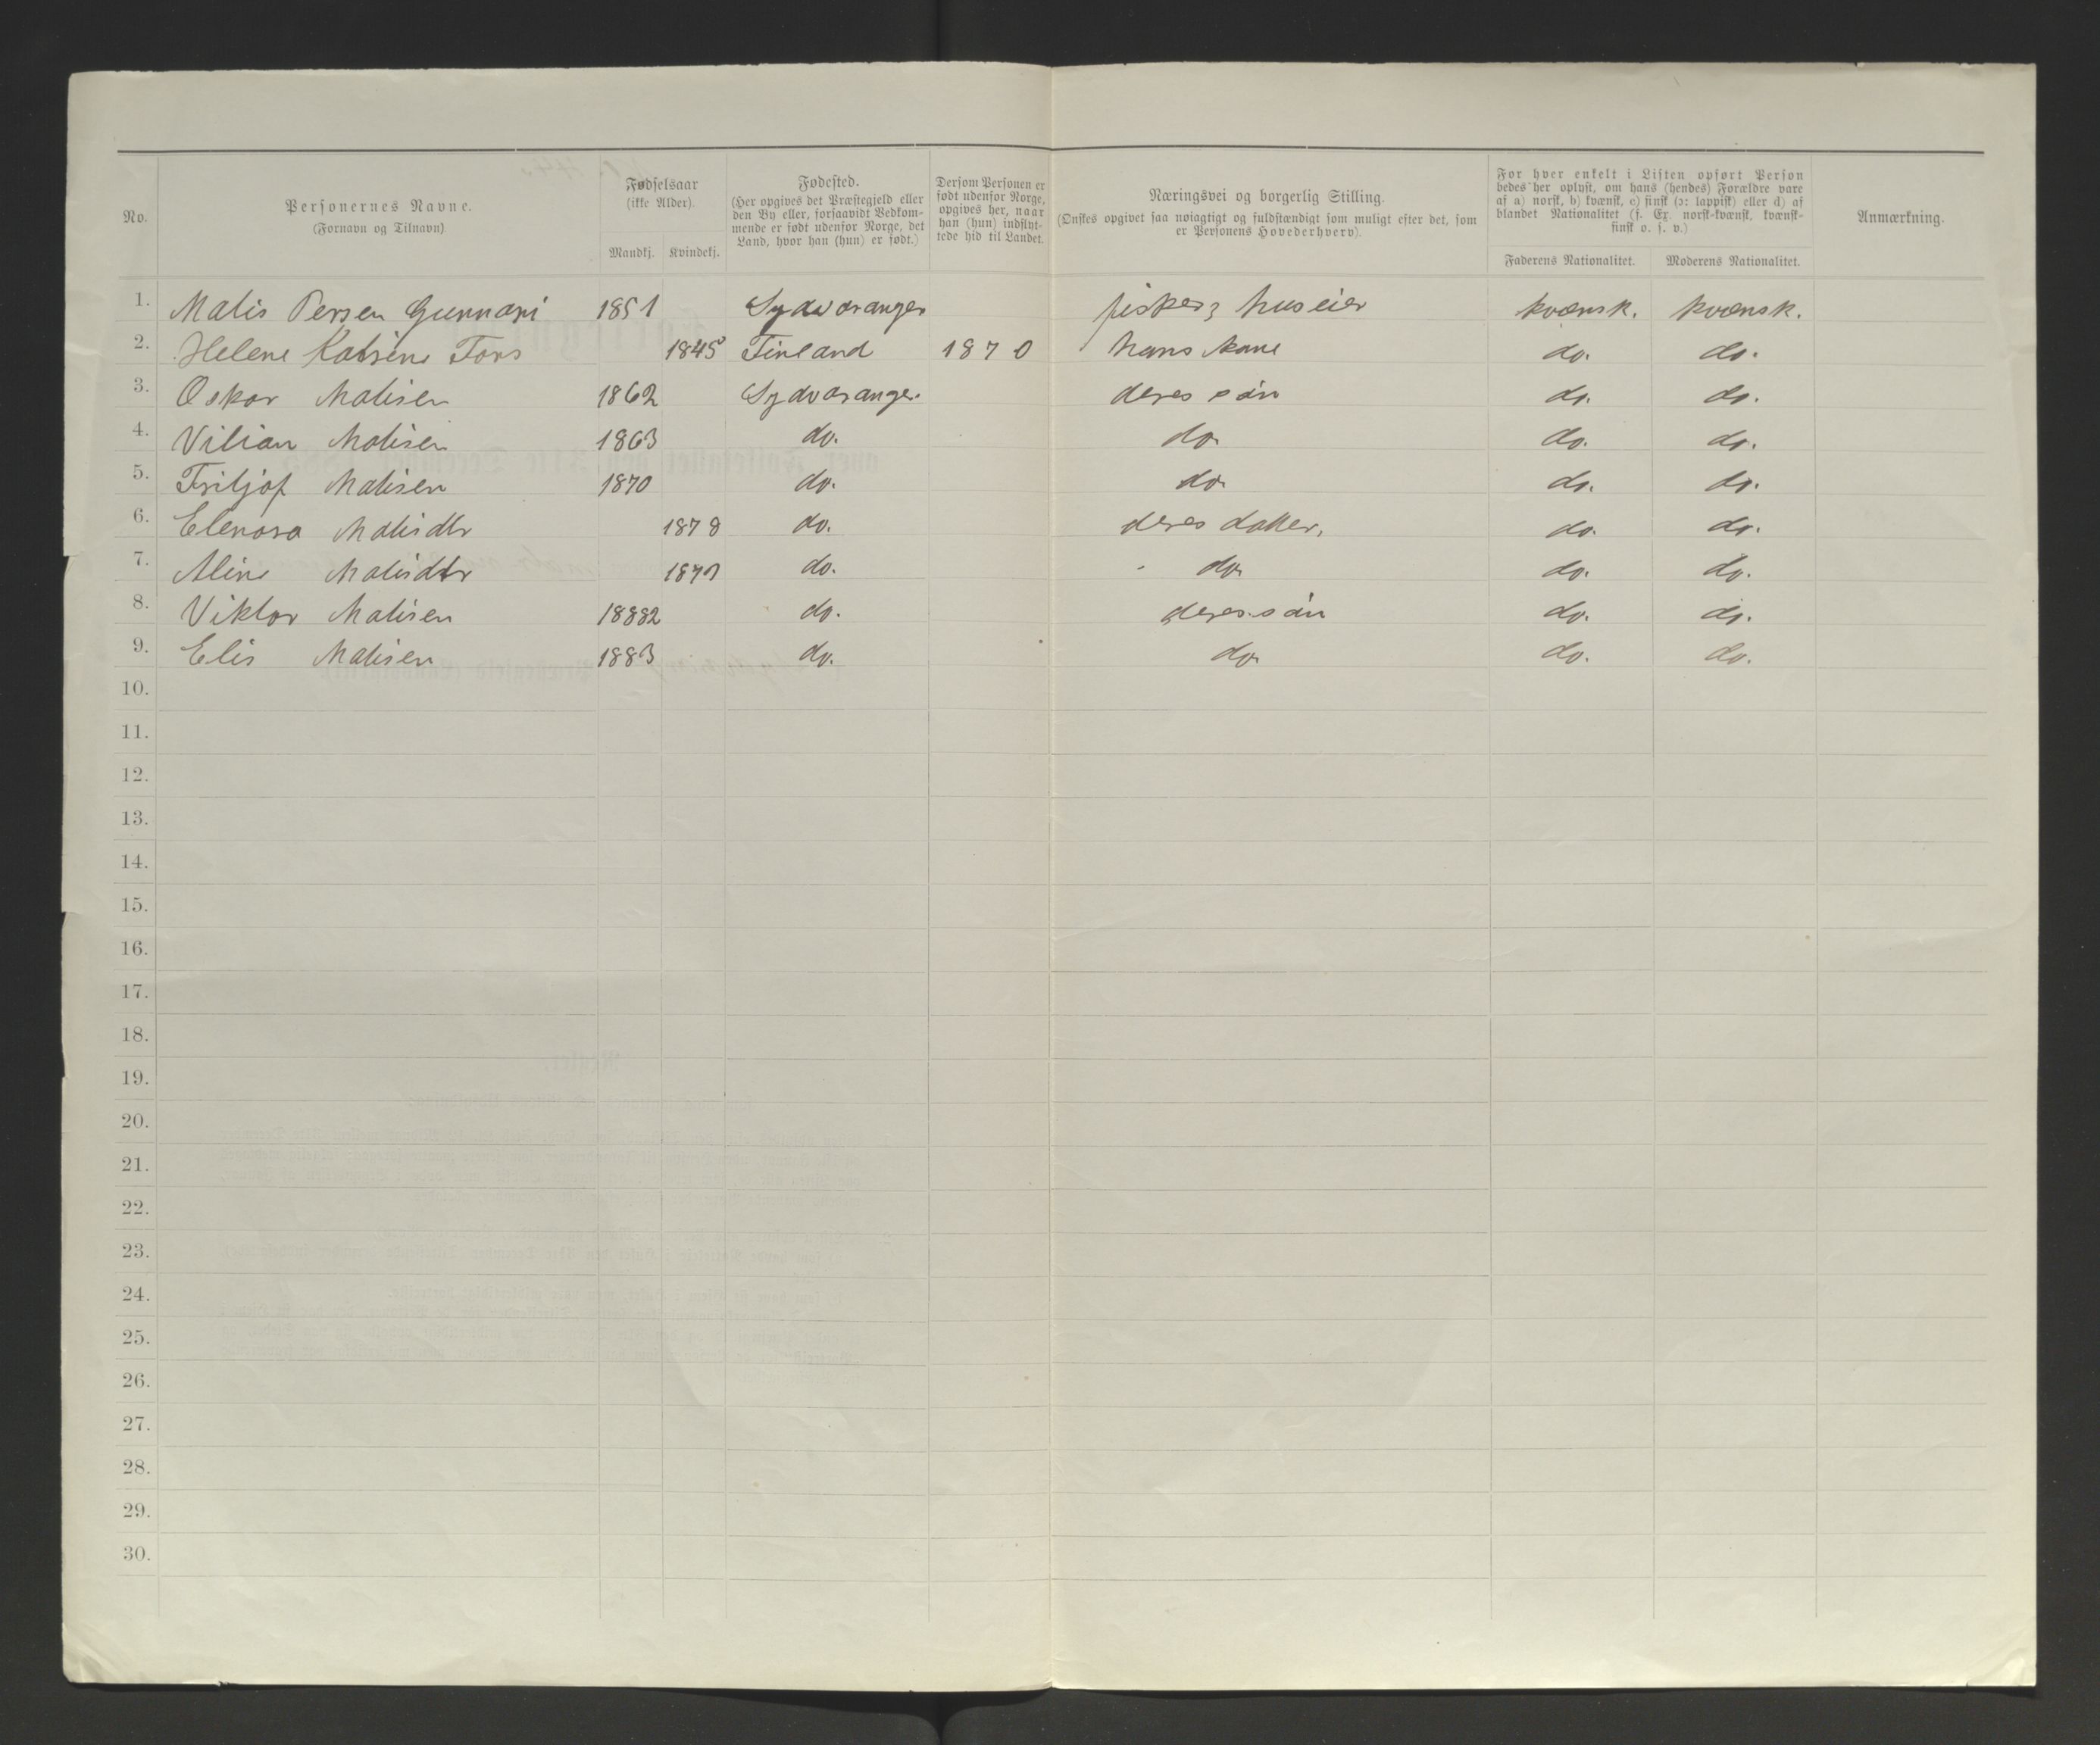 No.
Personernes Navne.
(Fornavn og Tilnavn)
Fødselsaar
(ikke Alder).
Mandkj. Kvindekj.
Fødested.
(Her opgives det Præstegjeld eller
den By eller, forsaavidt Vedkom-
mende er født udenfor Norge, det
Land, hvor han (hun) er født.)
Dersom Personen er
født udenfor Norge,
opgives her, naar
han (hun) indflyt-
tede hid til Landet.
Næringsvei og borgerlig Stilling.
(Ønskes opgivet saa nøiagtigt og fuldstændigt som muligt efter det, som
er Personens Hovederhverv).
For hver enkelt i Listen opført Person
bedes her oplyst, om hans (hendes) Forældre vare
af a) norsk, b) kvænsk, c) finsk (ɔ: lappisk) eller d) af
blandet Nationalitet (f. Ex. norsk-kvænsk, kvænsk-
finsk o. s. v.)
Faderens Nationalitet. Moderens Nationalitet.
Anmærkning.
1. Matis Persen Gunnari 1851 Sydvaranger fisker, huseier kvænsk. kvænsk.
2. Helene Katrine Fors 1845 Finland 1870 hans kone do. do.
3. Oskar Matisen 1862 Sydvaranger. deres søn do. do.
4. Vilian Matisen 1863 do. do do. do.
5. Fritjof Matisen 1870 do. do do. do.
6. Elenora Matisdtr 1878 do. deres datter, do. do.
7. Aline Matisdtr do. do do. do.
8. Viktor Matisen 18882 do. deres søn do. do.
9. Elis Matisen 1883 do. do do. do.
10.
11.
12.
13.
14.
15.
16.
17.
18.
19.
20.
21.
22.
23.
24.
25.
26.
27.
28.
29.
30.